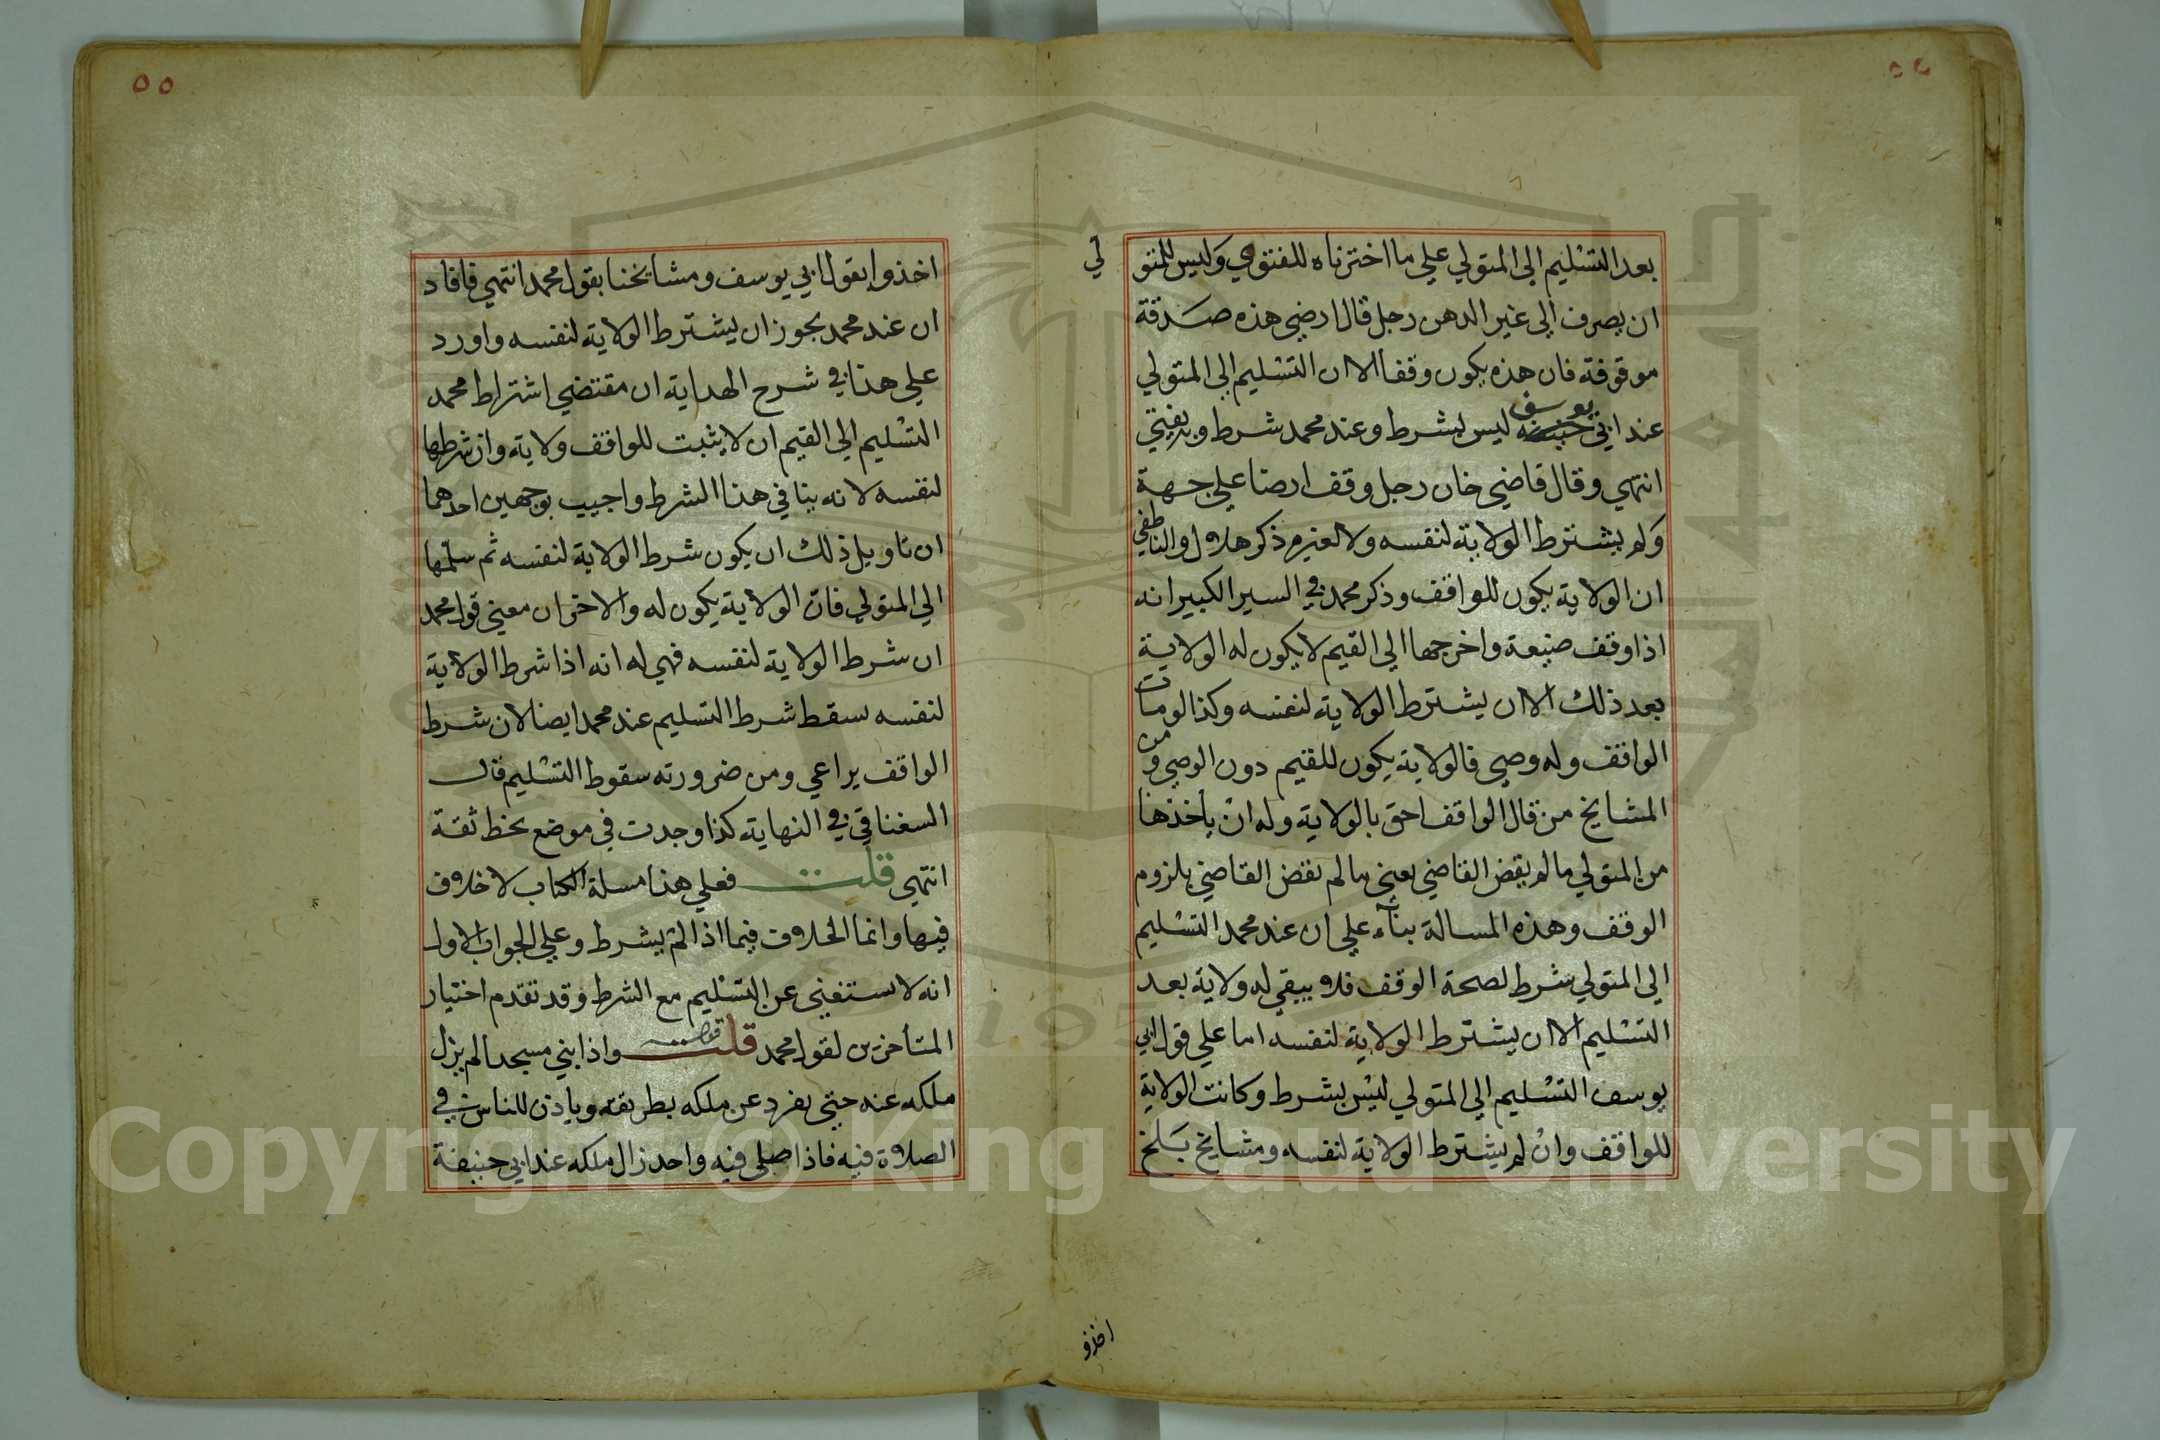 بعد التسليم الي المتولي علي ما اخترناه للفتوي وليس للمتو
لي
ان يصرف الي غير الدهن رجل قال ارضي هذه صدقة
موقوفة فان هذه يكون وقفا الا ان التسليم الي المتولي
عند ابي يوسف ليس بشرط وعند محمد شرط وبه يفتي
انتهي وقال قاضي خان رجل وقف ارضا علي جهة
ولم يشترط الولاية لنفسه ولا لغيره ذكر هلال والناطفي
ان الولاية يكون للواقف وذكر محمد في السير الكبير انه
اذا وقف ضيعة واخرجها الي القيم لا يكون له الولاية
بعد ذلك الا ان يشترط الولاية لنفسه وكذا لو مات
الواقف وله وصي فالولاية يكون للقيم دون الوصي ومن
المشايخ من قال الواقف احق بالولاية وله ان ياخذها
من المتولي ما لم يقض القاضي يعني ما لم يقض القاضي بلزوم
الوقف وهذه المسالة بناء علي ان عند محمد التسليم
الي المتولي شرط لصحة الوقف فلا يبقي له ولاية بعد
التسليم الا ان يشترط الولاية لنفسه اما علي قول ابي
يوسف التسليم الي المتولي ليس بشرط وكانت الولاية
للواقف وان لم يشترط الولاية لنفسه ومشايخ بلخ
اخذو
٥٥
اخذوا بقول ابي يوسف ومشايخنا بقول محمد انتهي فافاد
ان عند محمد يجوز ان يشترط الولاية لنفسه واورد
علي هذا في شرح الهداية ان مقتضي اشتراط محمد
التسليم الي القيم ان لا يثبت للواقف ولاية وان شرطها
لنفسه لانه ينافي هذا الشرط واجيب بوجهين احدهما
ان تاويل ذلك ان يكون شرط الولاية لنفسه ثم سلمها
الي المتولي فان الولاية يكون له والاخر ان معني قول محمد
ان شرط الولاية لنفسه فهي له انه اذا شرط الولاية
لنفسه سقط شرط التسليم عند محمد ايضا لان شرط
الواقف يراعي ومن ضرورته سقوط التسليم قال
السغناقي في النهاية كذا وجدت في موضع بخط ثقة
انتهي قلت فعلي هذا مسلة الكتاب لا خلاف
فيها وانما الخلاف فيما اذا لم يشرط وعلي الجواب الاول
انه لا يستغني عن التسليم مع الشرط وقد تقدم اختيار
المتأخرين لقول محمد قلت واذا بني مسجدا لم يزل
ملكه عنه حتي يفرد عن ملكه بطريقه وياذن للناس في
الصلاة فيه فاذا صلي فيه واحد زال ملكه عند ابي حنيفة
Copyright © King Saud University